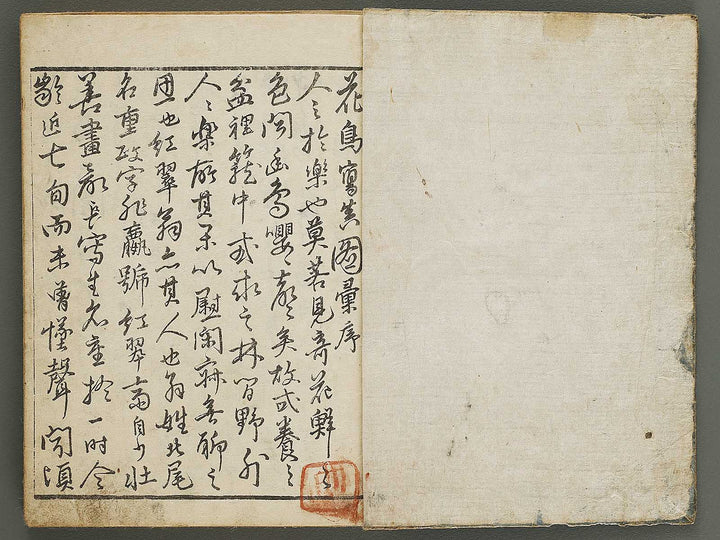 花鳥寫真圖彙序
人之於樂也莫若見奇花鮮之
色聞幽鳥嚶々聲矣故或養之
盆裡籠中或求之林間野外
人々樂所其以慰閑寂無聊之
思也紅翠翁亦其人也翁姓北尾
名重政字號紅翠齋自少壯
善畫最長寫生名重於一时今
齡近七旬而未曾懂聲聞頃